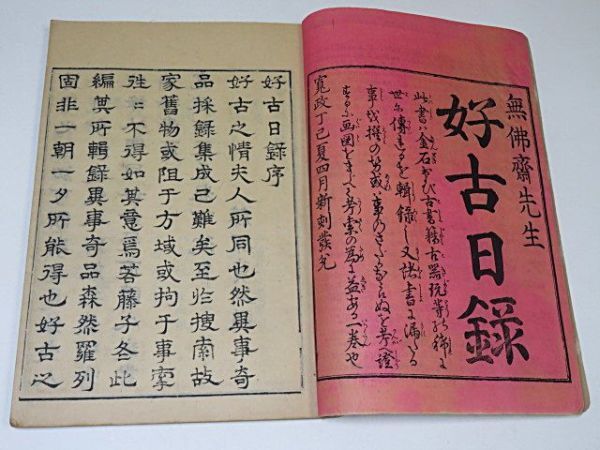 無佛齋先生
好古日録
此書ハ金石および古書籍古器玩等の稀に
世に傳るを輯録し又諸書に漏たる
事を撰の或ハ事のさだかならぬを考證
するに画図をまじへ考索の為に益ある一巻也
寛政丁巳夏四月新刻發兌
好古日録序
好古之情夫人所同也然異事奇
品採録集成已難矣至扵搜索故
家舊物或阻于方域或拘于事
徃〻不得如其意焉若藤子冬此
編其所輯録異事奇品森然羅列
固非一朝一夕所能得也好古之